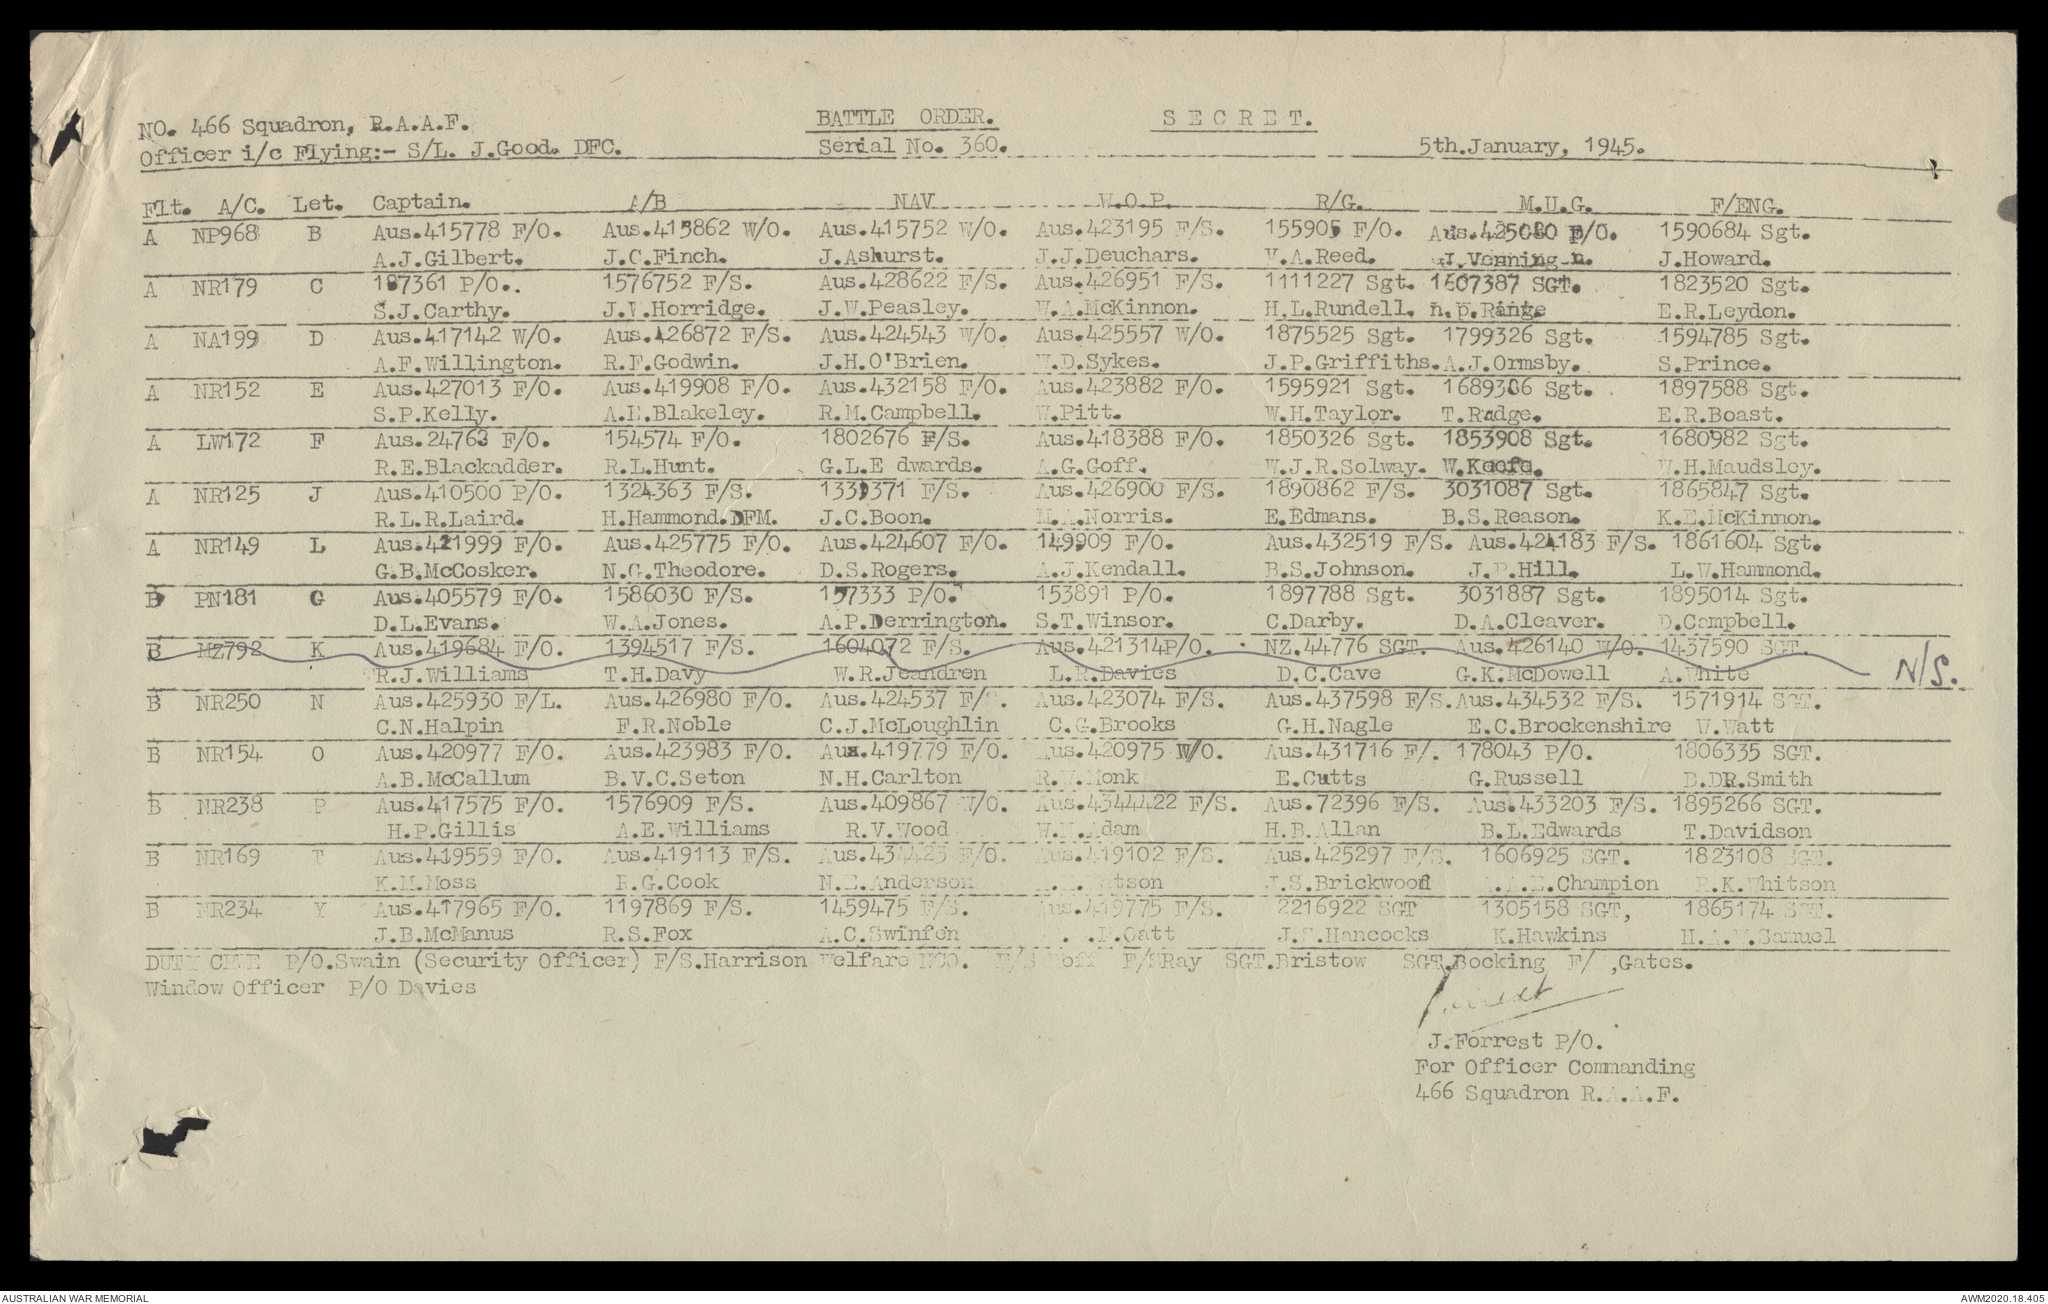 NO. 466 Squadron, R.A.A.F. BATTLE ORDER. S E C R E T.
Officer i/c Flying:- S/L. J.Good. DFC. Serial No. 360. 5th.January, 1945.
Flt. A/C. Let. Captain. A/B NAV W.O.P. R/G. M.U.G. F/ENG.
A NP968 B Aus.415778 F/O. Aus.415862 W/O. Aus.415752 W/O. Aus.423195 F/S. 155905 F/O. 1590684 Sgt.
A.J.Gilbert. J.C.Finch. J.Ashurst. J.J.Deuchars. V.A.Reed. J.Howard.
A NR179 C 187361 P/O.. 1576752 F/S. Aus.428622 F/S. Aus.426951 F/S. 1111227 Sgt. 1607387 SGT. 1823520 Sgt.
S.J.Carthy. J.V.Horridge. J.W.Peasley. W.A.McKinnon. H.L.Rundell. E.R.Leydon.
A NA199 D Aus.417142 W/O. Aus.426872 F/S. Aus.424543 W/O. Aus.425557 W/O. 1875525 Sgt. 1799326 Sgt. 1594785 Sgt.
A.F.Willington. R.F.Godwin. J.H.O'Brien. W.D.Sykes. J.P.Griffiths. A.J.Ormsby. S.Prince.
A NR152 E Aus.427013 F/O. Aus.419908 F/O. Aus.432158 F/O. Aus.423882 F/O. 1595921 Sgt. 1689306 Sgt. 1897588 Sgt.
S.P.Kelly. A.E.Blakeley. R.M.Campbell. W.Pitt. W.H.Taylor. T.Rudge. E.R.Boast.
A LW172 F Aus.24763 F/O. 154574 F/O. 1802676 F/S. Aus.418388 F/O. 1850326 Sgt. 1853908 Sgt. 1680982 Sgt.
R.E.Blackadder. R.L.Hunt. G.L.E dwards. A.G.Goff. W.J.R.Solway. W.Keefe. W.H.Maudsley.
A NR125 J Aus.410500 P/O. 1324363 F/S. F/S. Aus.426900 F/S. 1890862 F/S. 3031087 Sgt. 1865847 Sgt.
R.L.R.Laird. H.Hammond.DFM. J.C.Boon. M.A.Norris. E.Edmans. B.S.Reason. K.E.McKinnon.
A NR149 L Aus.421999 F/O. Aus.425775 F/O. Aus.424607 F/O. 149909 F/O. Aus.432519 F/S. Aus.424183 F/S. 1861604 Sgt.
G.B.McCosker. N.G.Theodore. D.S.Rogers. A.J.Kendall. B.S.Johnson. J.P.Hill. L.W.Hammond.
B PN181 G Aus.405579 F/O. 1586030 F/S. 157333 P/O. 153891 P/O. 1897788 Sgt. 3031887 Sgt. 1895014 Sgt.
D.L.Evans. W.A.Jones. A.P.Derrington. S.T.Winsor. C.Darby. D.A.Cleaver. D.Campbell.
B MZ792 K Aus.419684 F/O. 1394517 F/S. 1604072 F/S. Aus.421314P/O. NZ.44776 SGT. Aus.426140 W/O. 1437590 SGT.
R.J.Williams T.H.Davy W.R.Jeandren L.R.Davies D.C.Cave G.K.McDowell A.White N/S.
B NR250 N Aus.425930 F/L. Aus.426980 F/O. Aus.424537 F/S. Aus.423074 F/S. Aus.437598 F/S. Aus.434532 F/S. 1571914 SGT.
C.N.Halpin F.R.Noble C.J.McLoughlin C.G.Brooks G.H.Nagle E.C.Brockenshire W.Watt
B NR154 O Aus.420977 F/O. Aus.423983 F/O. Aus.419779 F/O. Aus.420975 W/O. Aus.431716 F/. 178043 P/O. 1806335 SGT.
A.B.McCallum B.V.C.Seton N.H.Carlton R.W.Monk E.Cutts G.Russell B.DR.Smith
B NR238 P Aus.417575 F/O. 1576909 F/S. Aus.409867 W/O. Aus.4344422 F/S. Aus.72396 F/S. Aus.433203 F/S. 1895266 SGT.
H.P.Gillis A.E.Williams R.V.Wood W.M.Adam H.B.Allan B.L.Edwards T.Davidson
B NR169 T Aus.419559 F/O. Aus.419113 F/S. Aus.434423 F/O. Aus.419102 F/S. Aus.425297 F/S. 1606925 SGT. 1823108 SGT.
K.M.Moss B.G.Cook N.E.Anderson J.S.Brickwood A.A.E.Champion R.K.Whitson
B NR234 Y Aus.417965 F/O. 1197869 F/S. 1459475 F/S. Aus.419775 F/S. 2216922 SGT 1305158 SGT, 1865174 SGT.
J.B.McManus R.S.Fox A.C.Swinfen J.S.Hancocks K.Hawkins H.A.W.Samuel
DUTY CREWE P/O.Swain (Security Officer) F/S.Harrison Welfare NCO. F/SRay SGT.Bristow SGT.Bocking F/ ,Gates.
Window Officer P/O Davies
J.Forrest P/O.
For Officer Commanding
466 Squadron R.A.A.F.
AUSTRALIAN WAR MEMORIAL AWM2020.18.405